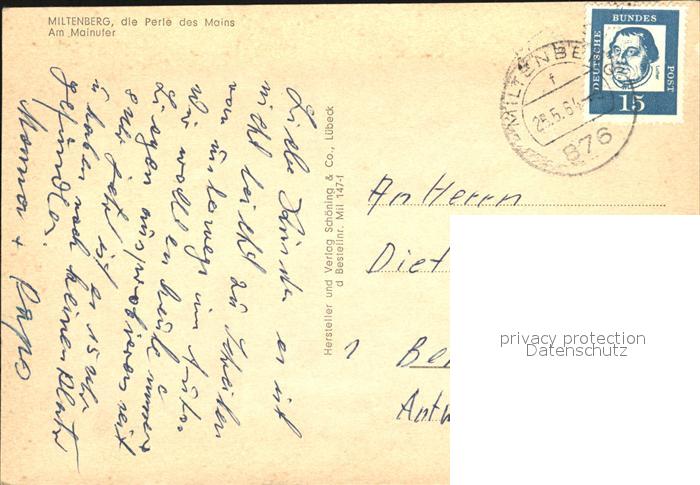 MILTENBERG, die Perle des Mains
Am Mainufer
DEUTSCHE BUNDES POST
15
Luther
MILTENBERG
f
25.5.61
876
Liebe es ist
nicht leicht zu schreiben
von unterwegs im Auto.
Wir wollen heute
Liegen
und jetzt ist es 15 Uhr
u haben noch keinen Platz
gefunden.
Mama + Papa
Hersteller und Verlag Schöning & Co., Lübeck
d Bestellnr. Mil 147-f
An Herrn
Diet
1 Be
Antw
privacy protection
Datenschutz